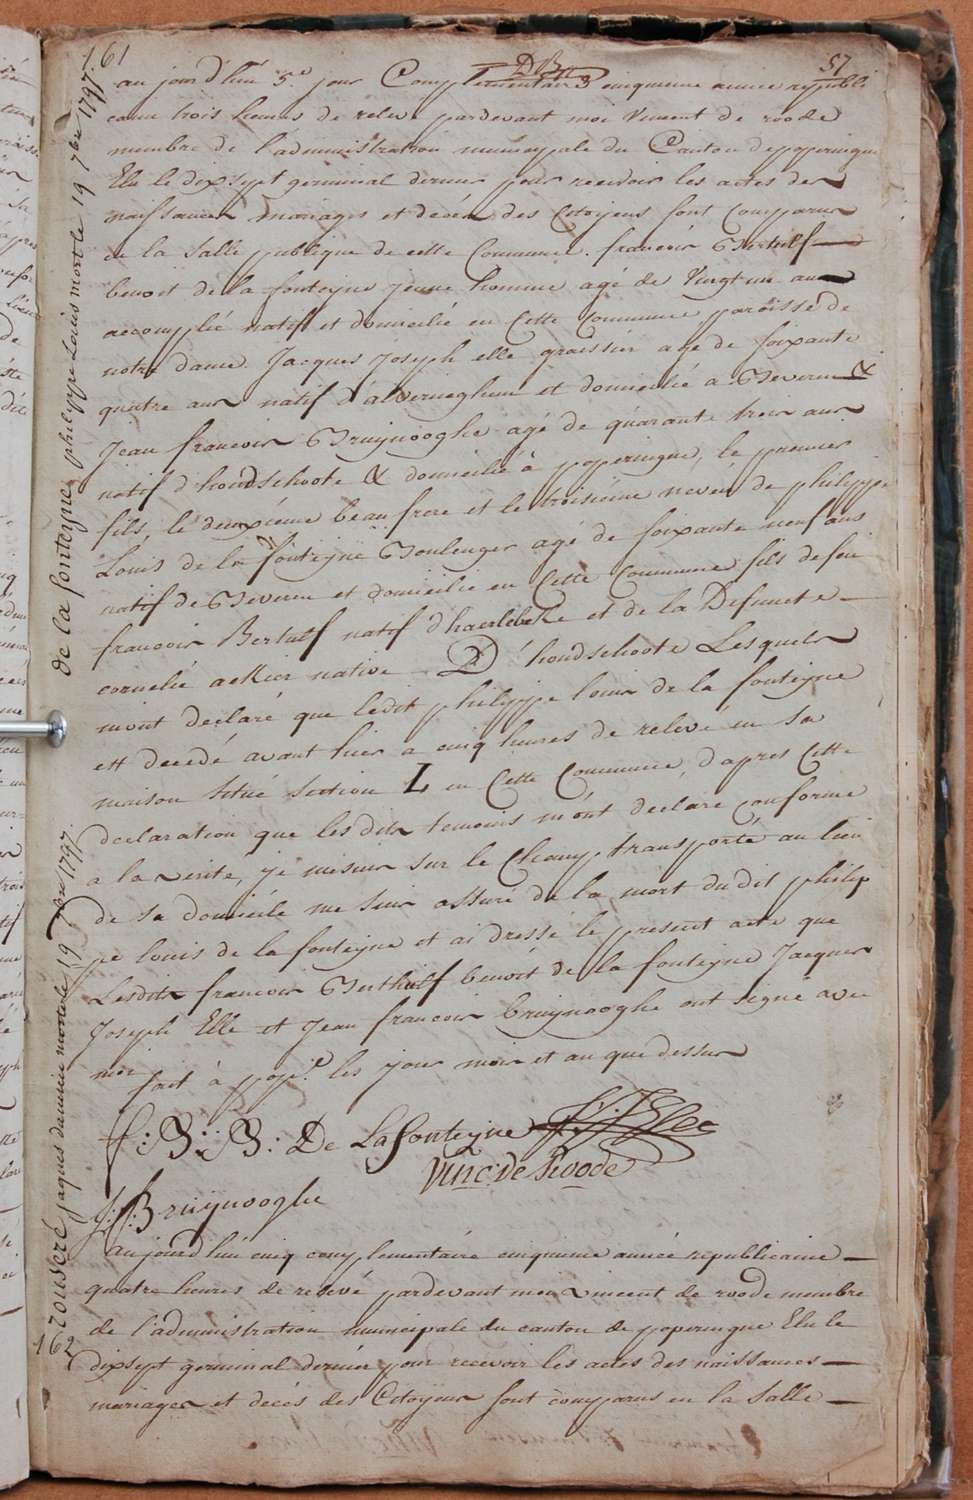 161
57
au jour d'hui 5e jour Complementaire cinquieme année republi
caine trois heures de relevé pardevant moi Vincent de roode
membre de l'administration municipale du Canton de poperingue
Elu le dixsept germinal dernier pour recevoir les actes des
naissances mariages et décès des Citoyens sont Comparus
en la Salle publique de cette Commune. francois Berthulf
benoit de la fonteyne jeune homme agé de Vingt un ans
accomplis natif et domicilié en cette Commune paroisse de
notre dame Jacques Joseph elle graissier agé de soixante
quatre ans natif d'alveringhem et domicilié a Beveren &
Jean francois Bruynooghe agé de quarante trois ans
natif d'hondschoote & domicilié à poperingue, le premier
fils, le deuxième beau frere et le troisieme neveu de philippe
Louis de la fonteyne Boulenger agé de soixante neuf ans
natif de Beveren et domicilie en Cette Commune fils de feu
francois Bertulf natif d'haerlebeke et de la Defuncte
cornelie acKier native D'hondschoote Lesquels
m'ont declaré que ledit philippe louis de la fonteyne
est decedé avant hier a cinq heures de relevé en sa
maison situé section L en Cette Commune, d'apres Cette
declaration que lesdits temoins m'ont declaré conforme
a la verité, je me suis sur le Champ transporté au lieu
de sa domicile me suis assuré de la mort dudit philip
pe louis de la fonteyne et ai dressé le present acte que
Lesdits francois Berthulf benoit de la fonteyne Jacques
Joseph Elle et Jean francois bruynooghe ont signé avec
moi
fait à pop.e les jour mois et an que dessus
f: B: B: De Lafonteyne J:J: Elle
Vinc: de Roode
J:f: Bruynooghe
de la fonteyne philippe Louis mort le 19 7bre 1797.
162
Aujourd'hui cinq complementaire cinquieme année republicaine
quatre heures de relevé pardevant moi vincent de roode membre
de l'administration municipale du canton de poperingue Elu le
dixsept germinal dernier pour recevoir les actes des naissances
mariages et decés des Citoyens sont comparus en la Salle
jaques mort le 19 7bre 1797.